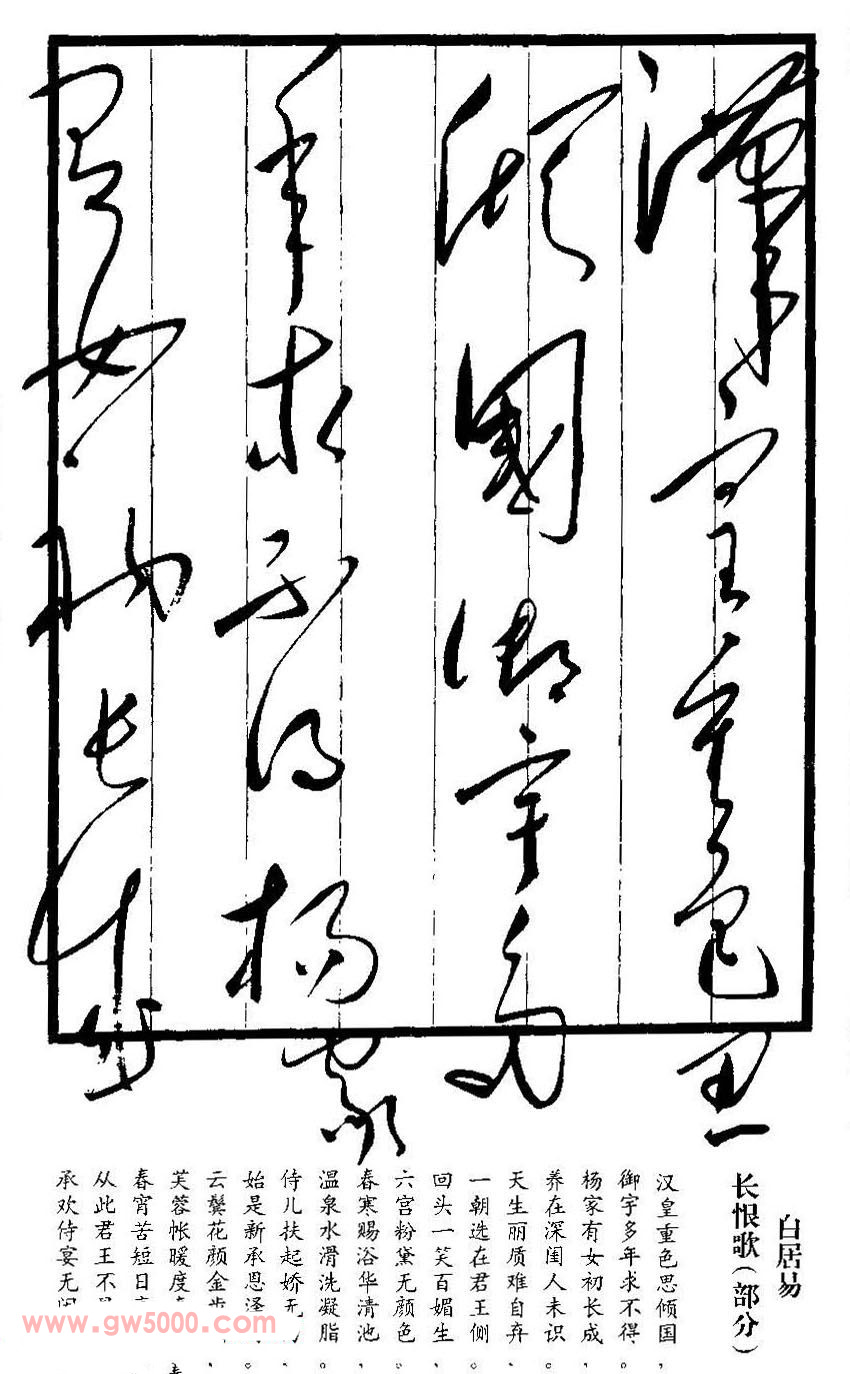 漢皇重色思
傾國御宇多
年求不得楊家
有女初長成
白居易
长恨歌（部分）
汉皇重色思倾国，
御宇多年求不得。
杨家有女初长成，
养在深闺人未识。
天生丽质难自弃，
一朝选在君王侧。
回头一笑百媚生，
六宫粉黛无颜色。
春寒赐浴华清池，
温泉水滑洗凝脂。
侍儿扶起娇无，
始是新承恩泽。
云鬓花颜金步，
芙蓉帐暖度
春宵苦短日
从此君王不
承欢侍宴无
www.gw5000.com